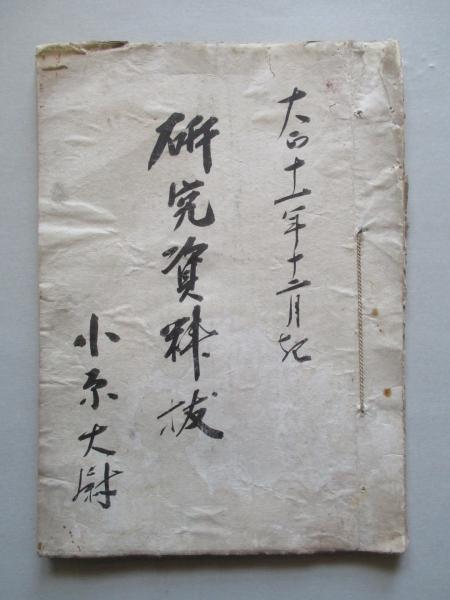 大正十一年十二月記
研究資料抜
小原大尉